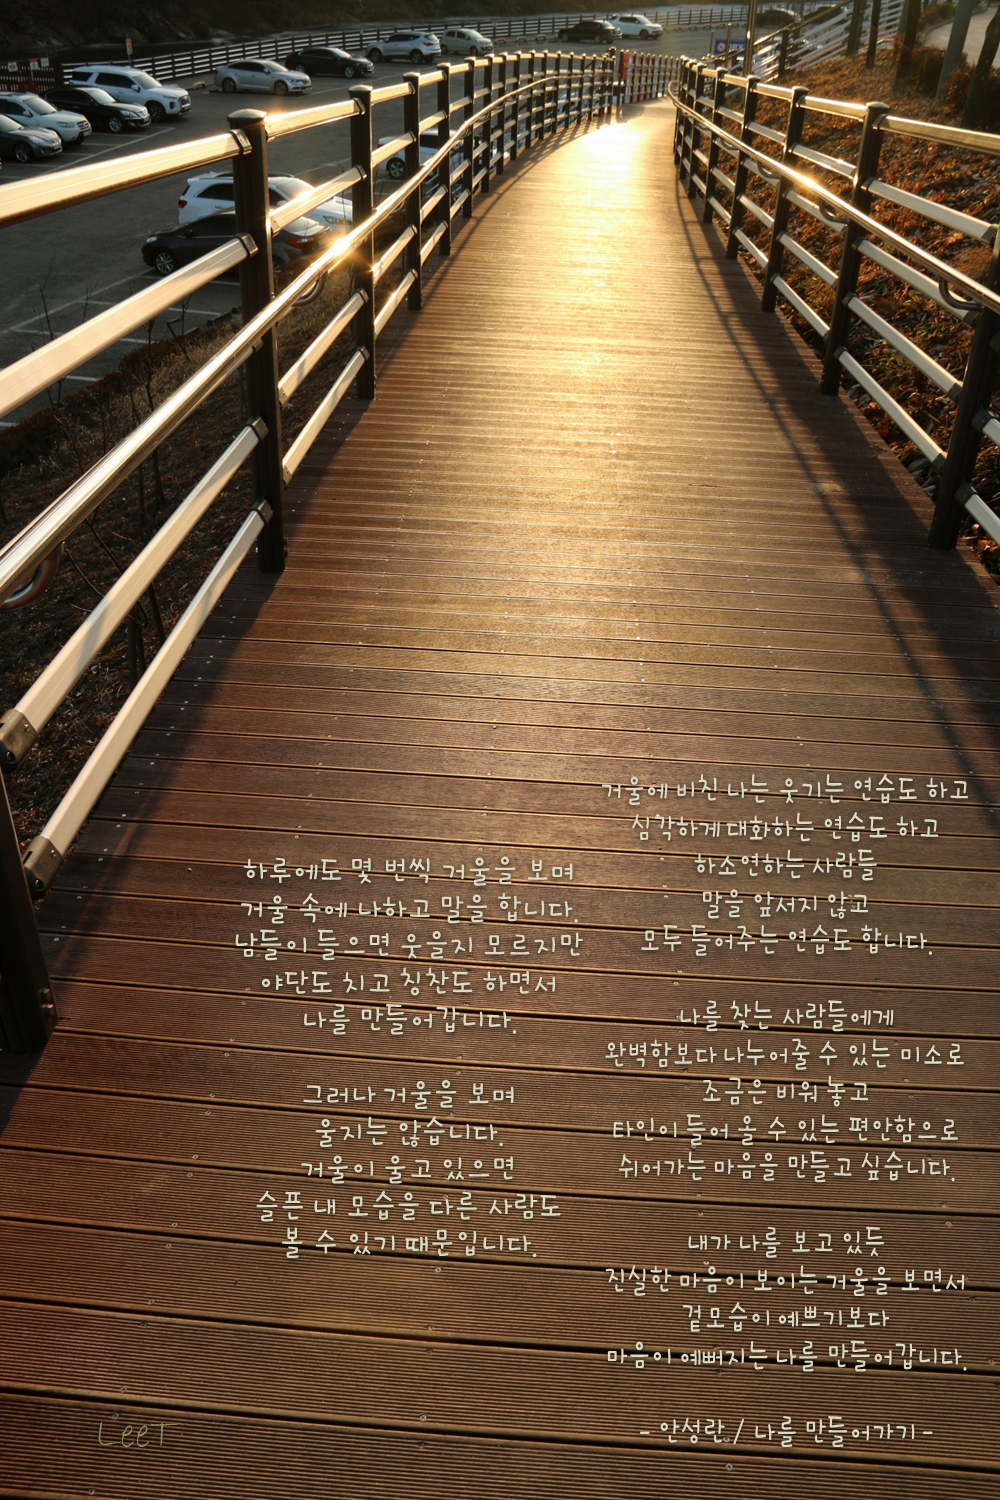 하루에도 몇 번씩 거울을 보며
거울 속에 나하고 말을 합니다.
남들이 들으면 웃을지 모르지만
야단도 치고 칭찬도 하면서
나를 만들어갑니다.
그러나 거울을 보며
울지는 않습니다.
거울이 울고 있으면
슬픈 내 모습을 다른 사람도
볼 수 있기 때문입니다.
거울에 비친 나는 웃기는 연습도 하고
심각하게 대화하는 연습도 하고
하소연하는 사람들
말을 앞서지 않고
모두 들어주는 연습도 합니다.
나를 찾는 사람들에게
완벽함보다 나누어줄 수 있는 미소로
조금은 비워 놓고
타인이 들어 올 수 있는 편안함으로
쉬어가는 마음을 만들고 싶습니다.
내가 나를 보고 있듯
진실한 마음이 보이는 거울을 보면서
겉모습이 예쁘기보다
마음이 예뻐지는 나를 만들어갑니다.
- 안성란 / 나를 만들어가기 -
LeeT